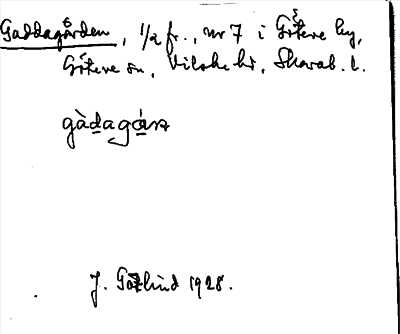 Gaddagården, 1/2 fr., nr 7 i Grteve by,
Grteve sn, Vilske hd, Skarab. l.
gàdagán
J. Götlind 1928.